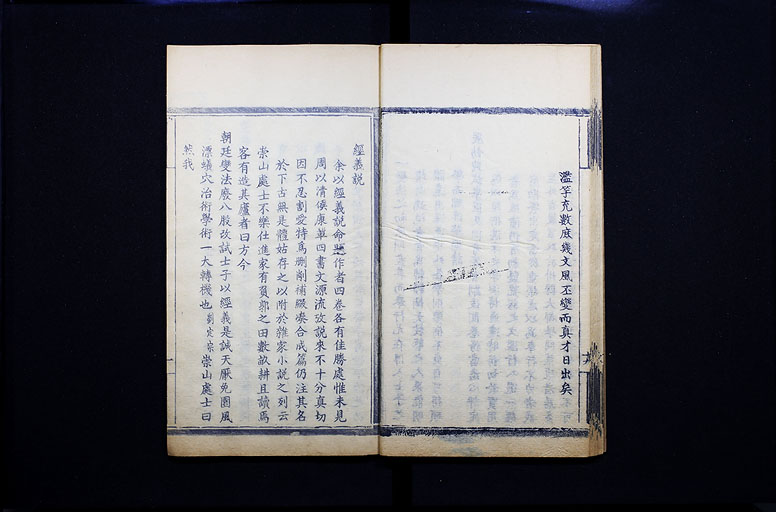 濫竽充數庶幾文風丕變而真才日出矣
經義說
余以經義說命題作者四卷各有佳勝處惟未見
周以清侯康華四書文源流攷說來不十分真切
因不忍割愛特爲刪削補綴湊合成篇仍注其名
於下古無是體姑存之以附於雜家小說之列云
崇山處士不樂仕進家有負郭之田數畝耕且讀焉
客有造其廬者曰方今
朝廷變法廢八股改試士子以經義是誠天厭兔園風
漂蟻穴治術學術一大轉機也崇山處士曰
然我